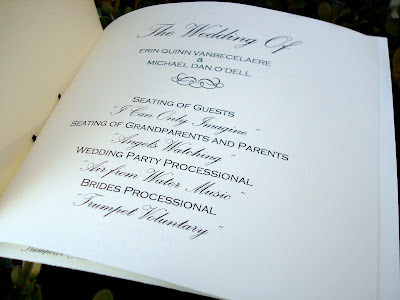 The Wedding Of
ERIN QUINN VANBECELAERE
&
MICHAEL DAN O'DELL
SEATING OF GUESTS
"I Can Only Imagine"
SEATING OF GRANDPARENTS AND PARENTS
"Angels Watching"
WEDDING PARTY PROCESSIONAL
"Air from Water Music"
BRIDES PROCESSIONAL
"Trumpet Voluntary"